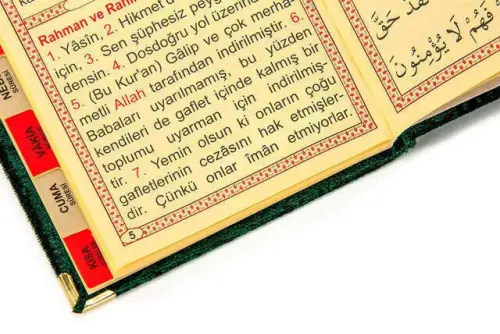 Rahman ve Rah
1. Yâsîn, 2. Hikmet d
için, 3. Sen şüphesiz peyg
densin. 4. Dosdoğru yol üzerin
5. (Bu Kur'an) Gâlip ve çok merha-
metli Allah tarafından indirilmiştir. 6.
Babaları uyarılmamış, bu yüzden
kendileri de gaflet içinde kalmış bir
toplumu uyarman için indirilmiş-
tir. 7. Yemin olsun ki onların çoğu
gafletlerinin cezasını hak etmişler-
dir. Çünkü onlar îmân etmiyorlar.
5
حَقَّ
فَهُمْ لَا يُؤْمِنُونَ
VÂKIA
SÛRESİ
CUMA
SÛRESİ
KISA